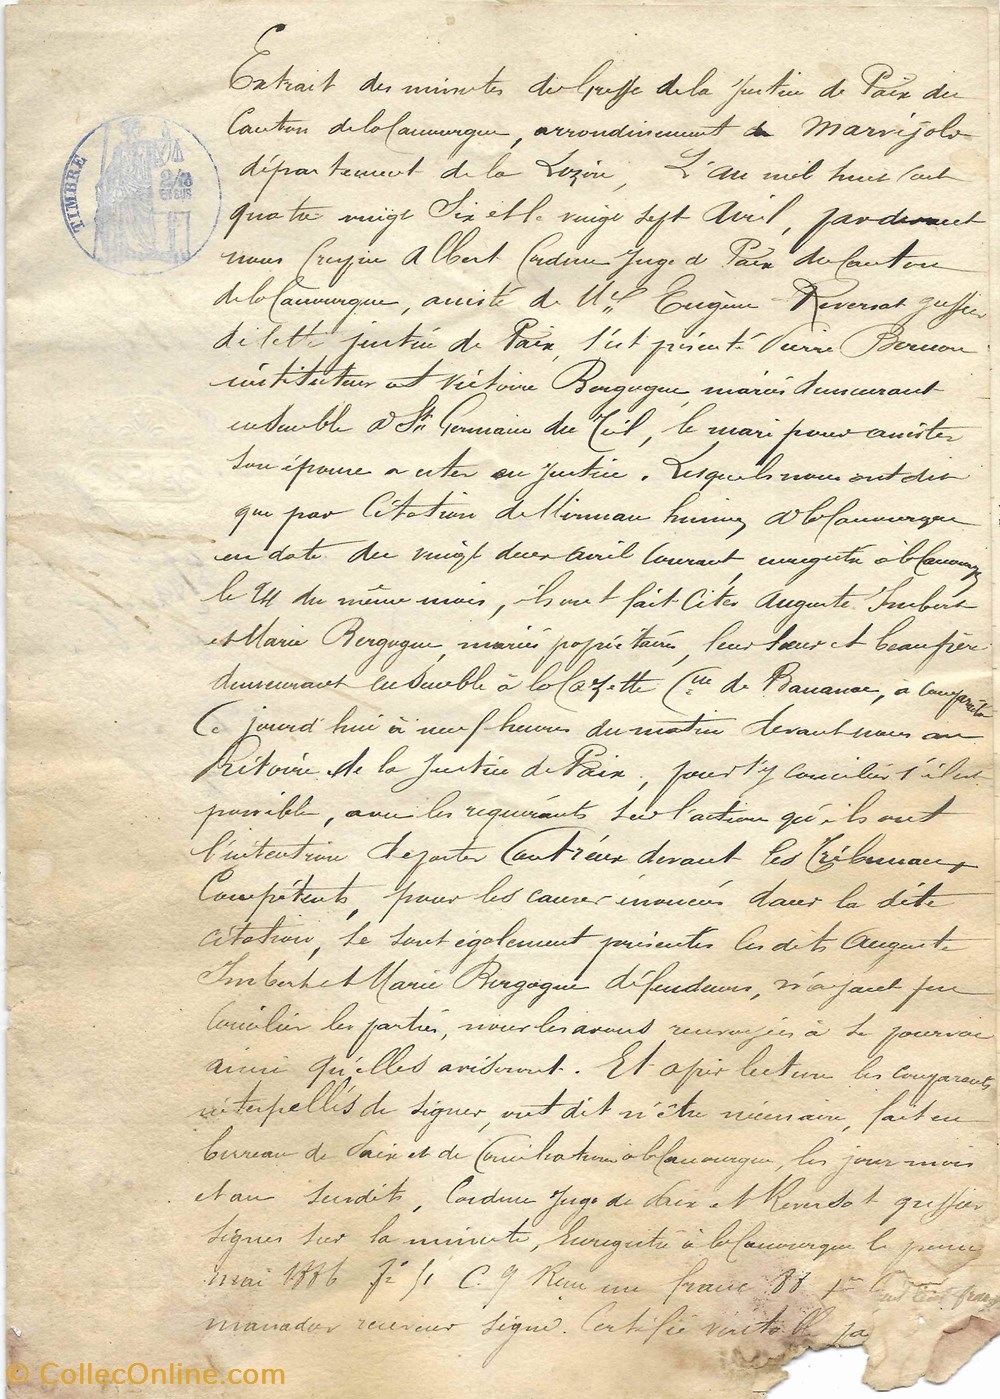 Extrait des minutes du Greffe de la Justice de Paix du
Canton de la Canourgue, arrondissement de Marvejols
département de la Lozère, L'an mil huit cent
quatre vingt Six et le vingt sept Avril, pardevant
nous Albert Cordesse Juge de Paix du Canton
de la Canourgue, assisté de Me Eugène Reversat greffier
de cette justice de Paix, s'est présenté Pierre
instituteur et Victoire Bergogne, mariés demeurant
ensemble à St Germain du Teil, le mari pour assister
son épouse a ester en justice. Lesquels nous ont dit
que par Citation de huissier à la Canourgue
en date du vingt deux avril Courant, enregistré à la Canourgue
le 24 du même mois, ils ont fait Citer Auguste Imbert
et Marie Bergogne, mariés propriétaires, leur soeur et beau frère
demeurant ensemble à la Cne de Banassac, à comparaitre
Ce jourd'hui à neuf heures du matin devant nous au
Prétoire de la Justice de Paix, pour s'y concilier s'il est
possible, avec les requérants sur l'action qu'ils ont
l'intention de porter Contr'eux devant les Tribunaux
Compétents, pour les causes énoncées dans la dite
citation, se sont également présentés les dits Auguste
Imbert et Marie Bergogne défendeurs, n'ayant pu
Concilier les parties, nous les avons renvoyées à se pourvoir
ainsi qu'elles aviseront. Et après lecture les comparants
interpellés de signer, ont dit n'être nécessaire, fait en
bureau de Paix et de Conciliation à la Canourgue, les jour mois
et an susdits, Cordesse Juge de Paix et Reversat greffier
signés sur la minute, Enregistré à la Canourgue le premier
mai 1886 fo 51 C. 9 Reçu un franc 88
receveur signé. Certifié véritable
TIMBRE
2/10
EN SUS
© CollecOnline.com